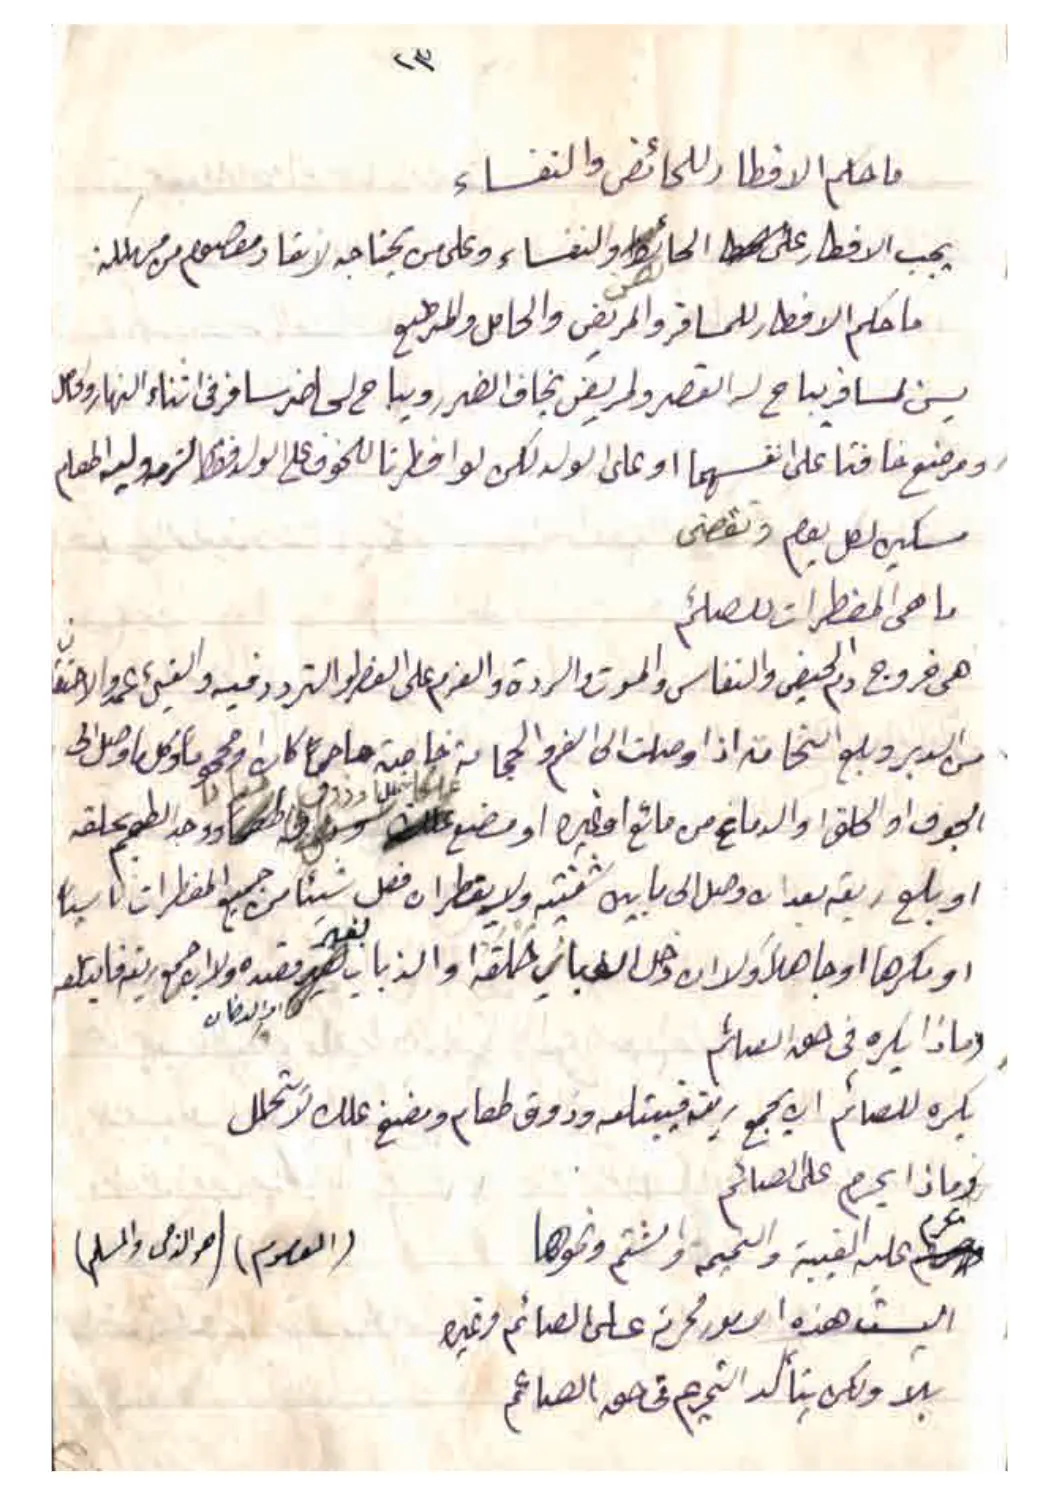 ٢٣
ما حكم الافطار للحائض والنفساء
يجب الافطار على الحائض والنفساء وعلى من يحتاجه لانقاذ معصوم من مهلكة
ما حكم الافطار للمسافر والمريض والحامل والمرضع
يسن لمسافر يباح له القصر ولمريض يخاف الضرر ويباح لحاضر سافر في اثناء النهار ولحامل
ومرضع خافتا على انفسهما او على الولد لكن لو افطرتا للخوف على الولد فقط لزم وليه اطعام
مسكين لكل يوم وتقضى
ما هى المفطرات للصائم
هى خروج دم الحيض والنفاس والموت والردة والعزم على الفطر والتردد فيه والقيئ عمدا والاحتقان
من الدبر وبلع النخامة اذا وصلت الى الفم والحجامة خاصة حاجما كان او محجوما وكل ما وصل الى
الجوف او الحلق او الدماغ من مائع او غيره او مضغ علك ووجد الطعم بحلقه
او بلع ريقه بعد ان وصل الى ما بين شفتيه ولا يفطر ان فعل شيئا من جميع المفطرات ناسيا
او مكرها او جاهلا ولا ان دخل الغبار حلقه او الذباب بغير قصده ولا ان جمع ريقه فابتلعه
او الدخان
وماذا يكره في حق الصائم
يكره للصائم ان يجمع ريقه فيبتلعه وذوق طعام ومضغ علك لا يتحلل
وماذا يحرم على الصائم
يحرم عليه الغيبة والنميمة والشتم ونحوها (المعصوم) (هو الذمى والمسلم)
اليست هذه الامور محرمة على الصائم وغيره
بلا ولكن يتأكد التحريم في حق الصائم